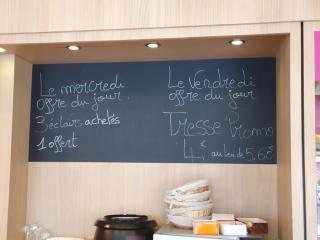 Le mercredi
offre du jour
3 éclairs achetés
1 offert
Le Vendredi
offre du jour
Tresse Promo
4€ au lieu de 5,60€